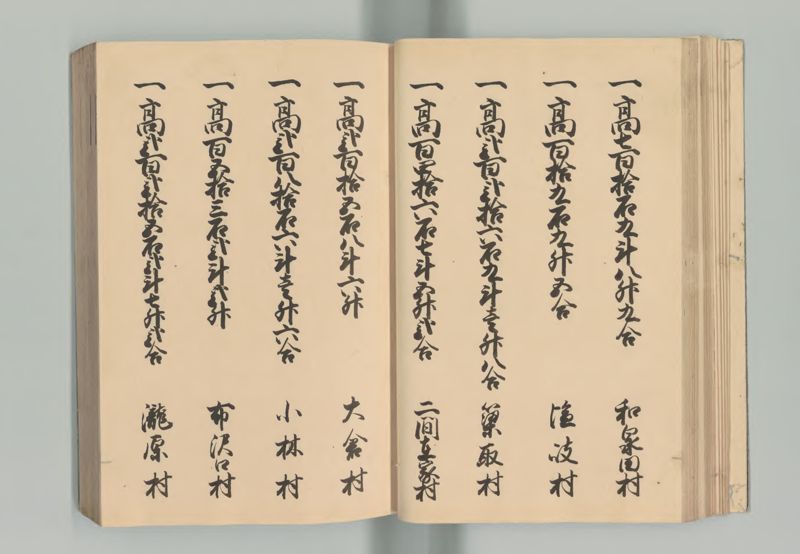 一高七百拾石九斗八升九合 和泉田村
一高百拾九石九升五合 塩岐村
一高弐百弐拾六石九斗壱升八合 簗取村
一高百五拾六石七斗五升弐合 二間在家村
一高弐百拾五石八斗六升 大倉村
一高弐百八拾石六斗壱升六合 小林村
一高百五拾三石弐斗弐升 布沢口村
一高弐百弐拾五石弐斗七升弐合 瀧原村